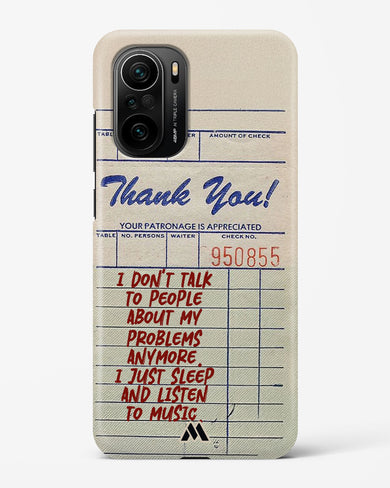 48MP AI TRIPLE CAMERA
AMOUNT OF CHECK
Thank You!
YOUR PATRONAGE IS APPRECIATED
TABLE NO. PERSONS WAITER CHECK NO.
950855
I DON'T TALK
TO PEOPLE
ABOUT MY
PROBLEMS
ANYMORE.
I JUST SLEEP
AND LISTEN
TO MUSIC